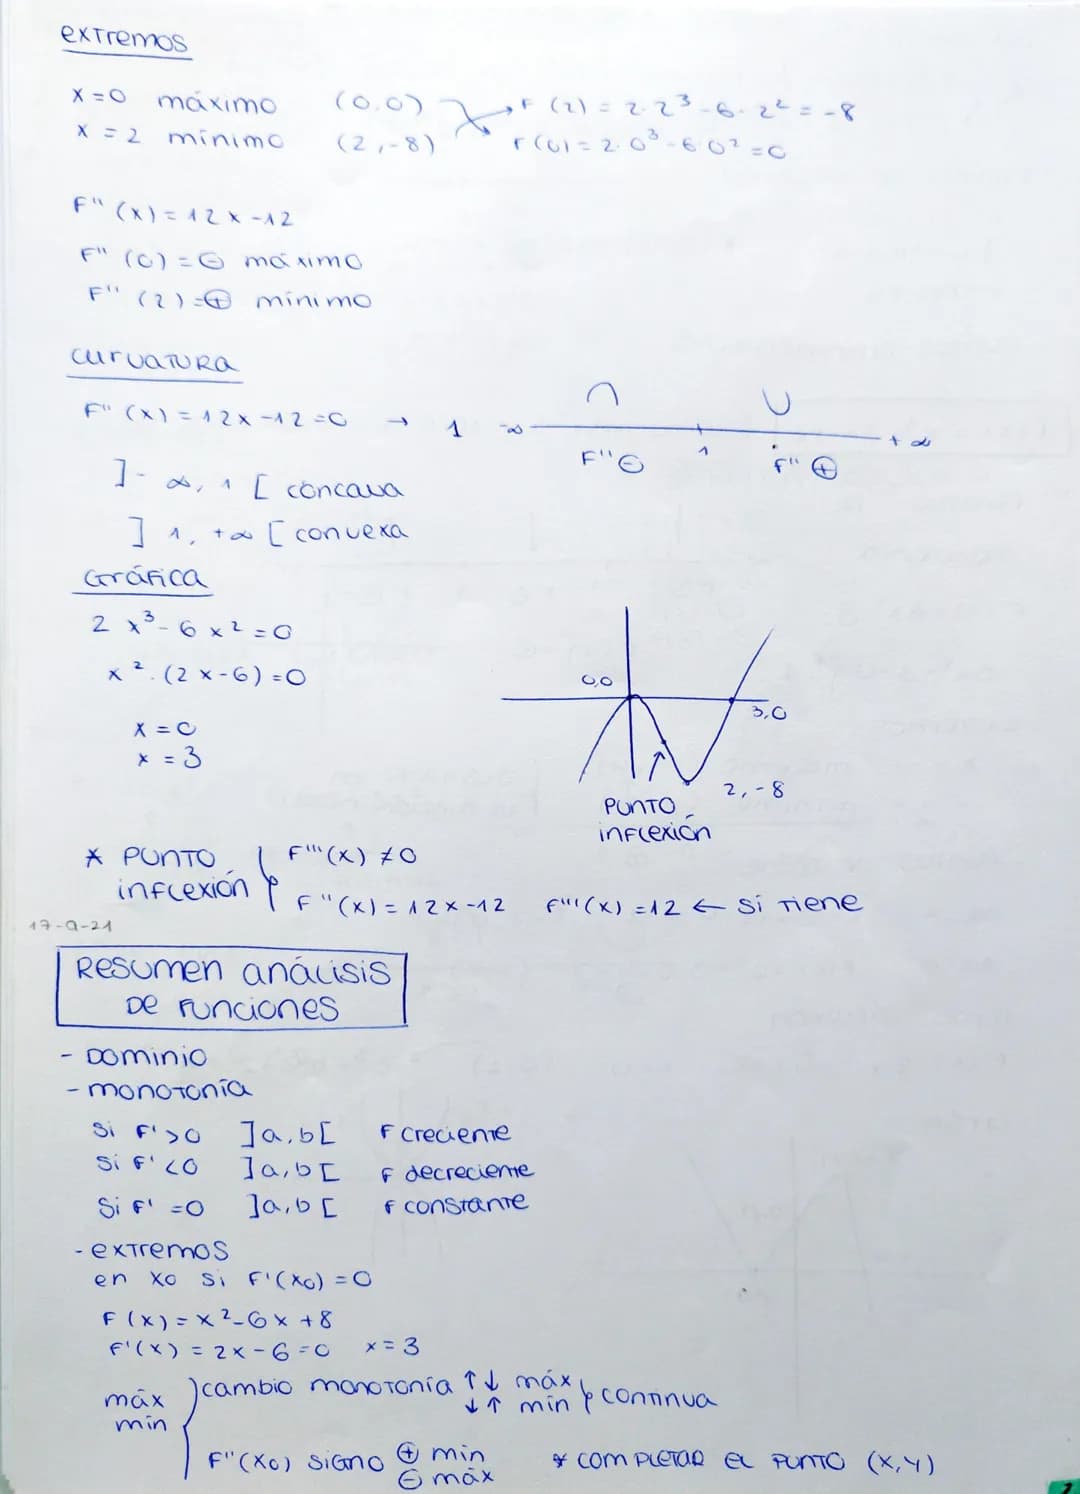 extremos
x=0 máximo (0,0) F(2) = 2·2³-6·2² = -8
x=2 mínimo (2,-8) F(0) = 2·0³-6·0² = 0
F''(x) = 12x-12
F''(0) = ⊖ máximo
F''(2) = ⊕ mínimo
curvatura
F''(x) = 12x-12=0 → 1 -∞ 1 +∞
F''⊖ F''⊕
]-∞, 1[ cóncava
]1, +∞[ convexa
Gráfica
2x³-6x²=0
x²·(2x-6)=0
0,0
3,0
x=0
x=3
2,-8
PUNTO
inflexión
* PUNTO inflexión { F'''(x) ≠0
F''(x) = 12x-12 F'''(x) =12 ← sí tiene
17-9-21
Resumen análisis
De Funciones
- Dominio
- monotonía
Si F'>0 ]a,b[ F creciente
Si F'<0 ]a,b[ F decreciente
Si F'=0 ]a,b[ F constante
- extremos
en x₀ si F'(x₀) = 0
F(x) = x²-6x+8
F'(x) = 2x-6=0 x=3
máx
mín
cambio monotonía ↑↓ máx
↓↑ mín } continua
F''(x₀) signo ⊕ mín
⊖ máx
* completar el punto (x,y)
2